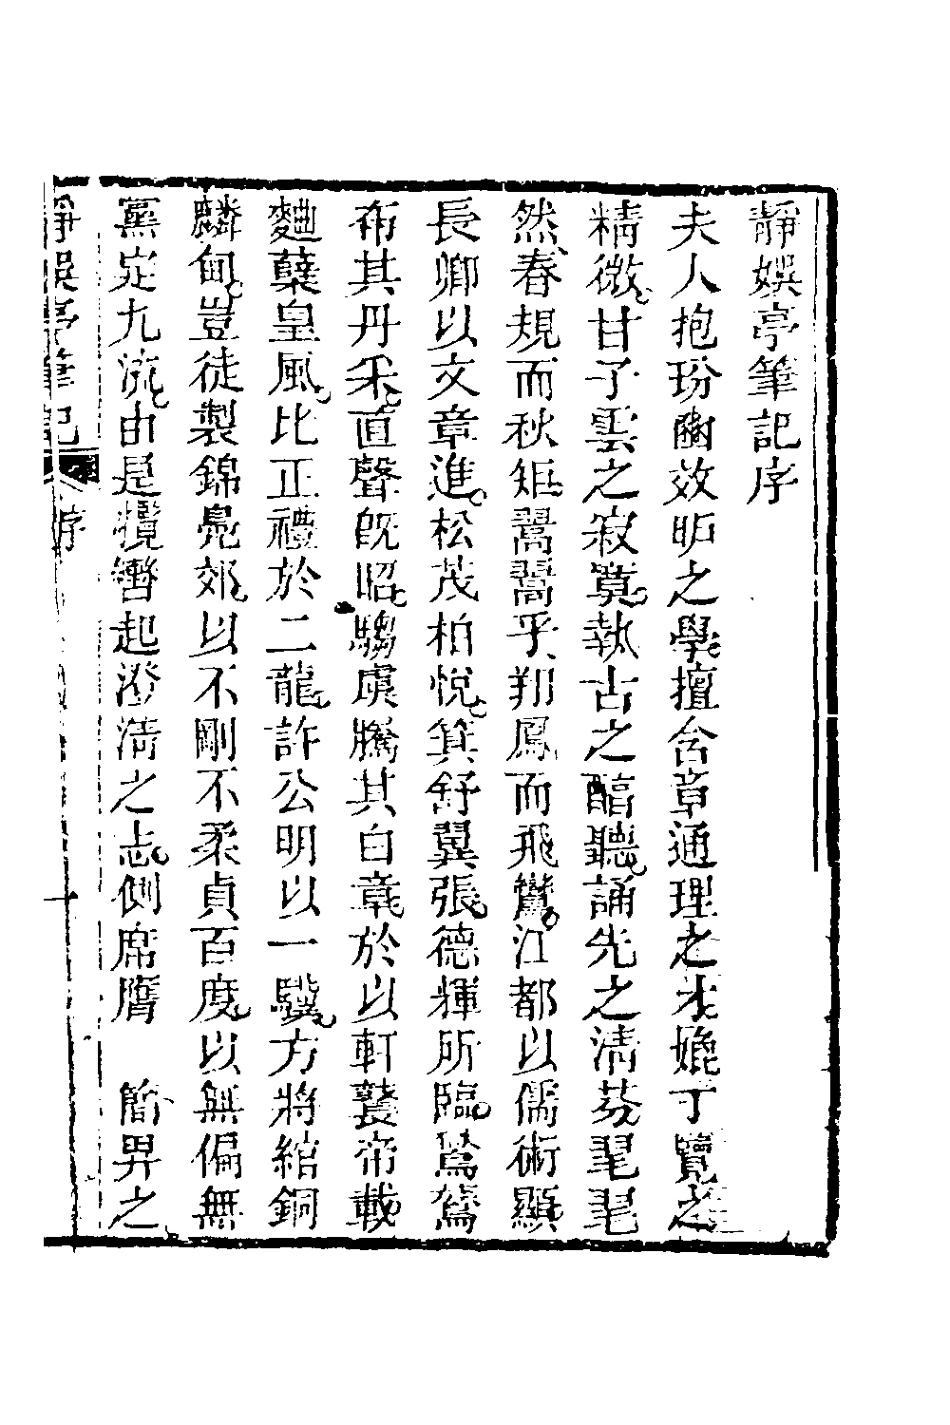 靜娛亭筆記序
夫人抱玢豳效昈之學擅含章通理之才娩丁覽之
精微甘子雲之寂寞執古之醕聽誦先之清芬毣毣
然春規而秋矩翯翯乎翔鳳而飛鸞江都以儒術顯
長卿以文章進松茂柏悅箕舒翼張德輝所臨鴛鴦
布其丹采直聲旣昭騶虞騰其白章於以軒蘘帝載
麯櫱皇風比正禮於二龍許公明以一驥方將綰銅
麟甸豈徒製錦鳧郊以不剛不柔貞百度以無偏無
黨定九流由是攬轡起澄清之志側席膺　簡畀之
靜娛亭筆記
序
一